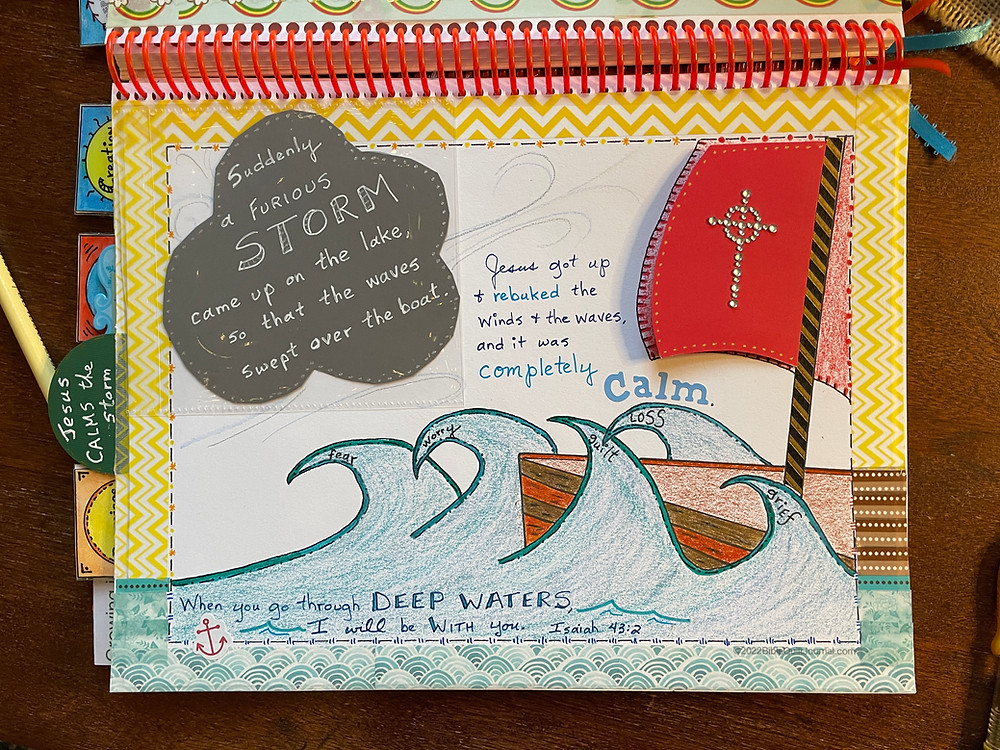 Suddenly
a FURIOUS
STORM
came up on the lake,
so that the waves
swept over the boat.
Jesus got up
+ rebuked the
winds + the waves,
and it was
completely
Calm.
fear
worry
guilt
LOSS
grief
When you go through DEEP WATERS,
I will be WITH you. Isaiah 43:2
©2022BibleQuiltJournal.com
Creation
Jesus
CALMS the
storm